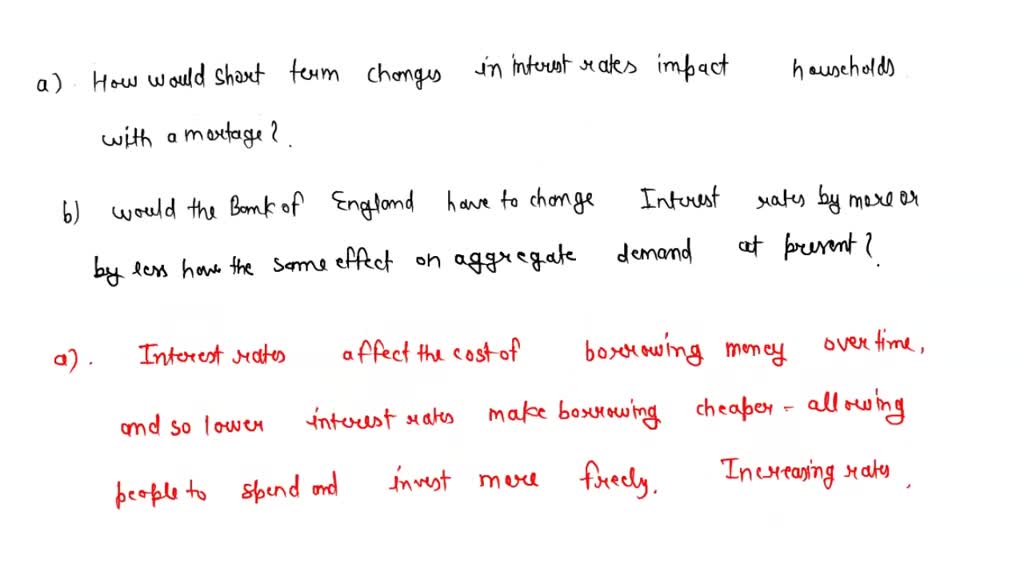 a) How would short term changes in interest rates impact households
with a mortage?
b) would the Bank of England have to change Interest rates by more or
by less have the same effect on aggregate demand at present?
a). Interest rates affect the cost of borrowing money over time,
and so lower interest rates make borrowing cheaper - allowing
people to spend and invest more freely. Increasing rates.